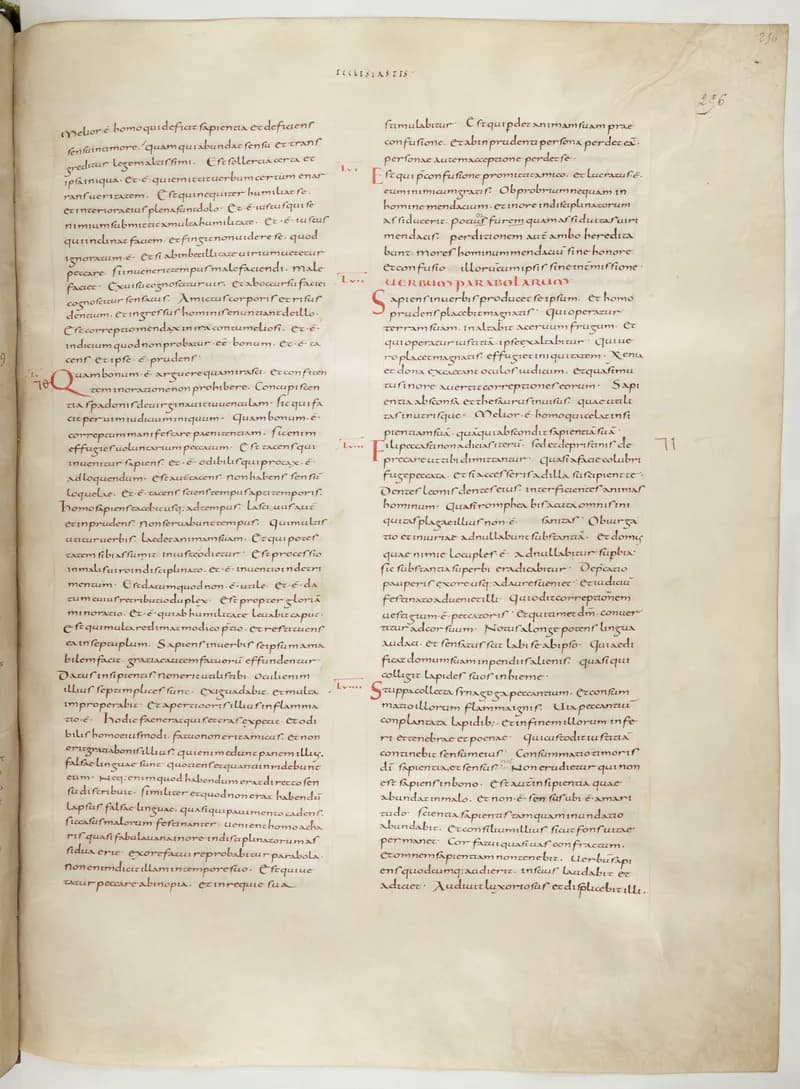 ECCLESIASTIS
296
296
Melior ·ē· homo qui deficit sapientia et deficiens
sensu in timore, quam qui abundat sensu et trans
greditur legem altissimi. Est sollercia certa et
ipsa iniqua. Et ·ē· qui emittit uerbum certum enar
rans ueritatem. Est qui nequiter humiliat se.
et interiora eius plena sunt dolo. Et ·ē· iustus qui se
nimium submittit a multa humilitate. Et ·ē· iustus
qui inclinat faciem. et fingit non uidere se. quod
ignoratum ·ē· Et si ab inbecillitate uirium uetetur
peccare. si inuenerit tempus malefaciendi. male
faciet. Ex uisu cognoscitur uir. et ab occursu faciei
cognoscitur sensatus. Amictus corporis et risus
dentium. et ingressus hominis enuntiant de illo.
Est correptio mendax in ira contumeliosi. Et ·ē·
iudicium quod non probatur eē bonum. Et ·ē· ta
cens et ipse ·ē· prudens.
LI
70
Quam bonum ·ē· arguere quam irasci. et confiten
tem in oratione non prohibere. Concupiscen
tia spadonis deuirginauit iuuenculam. sic qui fa
cit per uim iudicium iniquum. Quam bonum ·ē·
correptum manifestare paenitentiam. sic enim
effugies uoluntarium peccatum. Est tacens qui
inuenitur sapiens. et ·ē· odibilis qui procax ·ē·
ad loquendum. Est autē tacens non habens sensū
loquelae. Et ·ē· tacens sciens tempus apti temporis.
Homo sapiens tacebit usq; ad tempus. lasciuus autē
et inprudens. non seruabunt tempus. Qui multis
utitur uerbis. laedet animam suam. et qui potes
tatem sibi assumit iniuste odietur. Est processio
in malis uiro indisciplinato. et ·ē· inuentio in detri
mentum. Est datum quod non ·ē· utile. et ·ē· da
tum cuius retributio duplex. Est propter gloriā
minoratio. et ·ē· qui ab humilitate leuabit caput.
Est qui multa redimat modico ptio. et restituens
ea in septuplum. Sapiens in uerbis se ipsum ama
bilem facit. gratiae autem fatuorū effundentur.
Datus insipientis non erit utilis tibi. oculi enim
illius septimplices sunt. Exigua dabit. et multa
improperabit. et apertio oris illius inflamma
tio ·ē· Hodie faenerat quis et cras expetit. et odi
bilis homo eiusmodi. fatuo non erit amicus. et non
erit gratia bonis illius. qui enim edunt panem illius.
falsae linguae sunt. quotiens et quanti inridebunt
eum. Neq; enim quod habendum erat directo sen
su distribuit. similiter et quod non erat habendū
lapsus falsae linguae. quasi qui pauimento cadens.
sic casus malorum festinanter uenient homo acha
ris quasi fabula uana in ore indisciplinatorum as
sidua erit. ex ore fatui reprobabitur parabola.
non enim dicit illam in tempore suo. Est qui ue
tatur peccare ab inopia. et in requie sua
stimulabitur. Est qui perdet animam suam prae
confusione. et ab inprudenti persona perdet eā.
personae autem acceptione perdet se.
LII
Est qui p confusione promittit amico. et lucratus ē.
eum inimicum gratis. Obprobrium nequam in
homine mendacium. et in ore indisciplinatorum
assidue erit. Potius furem quam assiduitas uiri
mendacis. perditionem autē ambo heredita
bunt. Mores hominum mendaciū sine honore
et confusio illorū cum ipsis sine intmissione.
LIII
UERBUM PARABOLARUM
Sapiens in uerbis producet se ipsum. et homo
prudens placebit magnatis. Qui operatur
terram suam. inaltabit aceruum frugum. et
qui operatur iustitiā. ipse exaltabitur. Qui ue
ro placet magnatis. effugiet iniquitatem. Xenia
et dona excaecant oculos iudicum. et quasi mu
tus in ore auertit correptiones eorum. Sapi
entia absconsa et thesaurus inuisus. quae utili
tas in utrisque. Melior ·ē· homo qui celat insi
pientiam suā. quā qui abscondit sapientiā suā.
LIIII
71
Fili peccasti non adicias iterū. sed et de pristinis de
precare ut tibi dimittantur. Quasi a facie colubri
fuge peccata. et si accesseris ad illa suscipient te.
Dentes leonis dentes eius. interficientes animas
hominum. Quasi romphea bis acuta omnis ini
quitas plagae illius non ·ē· sanitas. Obiurga
tio et iniuriae adnullabunt substantiā. et domus
quae nimie locuples ·ē· adnullabitur supbia.
sic substantia superbi eradicabitur. Depcatio
pauperis ex ore usq; ad aures ueniet. et iudiciū
festinato adueniet illi. Qui odit correptionem
uestigium ·ē· peccatoris. et qui timet dm̄. conuer
titur ad cor suum. Notus a longe potens lingua
audaci. et sensatus scit labi se ab ipso. Qui aedi
ficat domum suam inpendiis alienis. quasi qui
colligit lapides suos in hieme.
LV
Stuppa collecta sinagoga peccantium. et consum
matio illorum flamma ignis. Uia peccantiū
conplantata lapidib; et in fine illorum infe
ri et tenebrae et poenae. Qui custodit iustitiā
continebit sensum eius. Consummatio timoris
dī sapientia et sensus. Non erudietur qui non
est sapiens in bono. Est autē insipientia quae
abundat in malo. et non ·ē· sensus ubi ·ē· amari
tudo. scientia sapientis tamquam inundatio
abundabit. et consilium illius sicut fons uitae
permanet. Cor fatui quasi uas confractum.
et omnem sapientiam non tenebit. Uerbū sapi
ens quodcumq; audierit. inscius laudabit et
adiciet. Audiuit luxoriosus et displicebit illi.